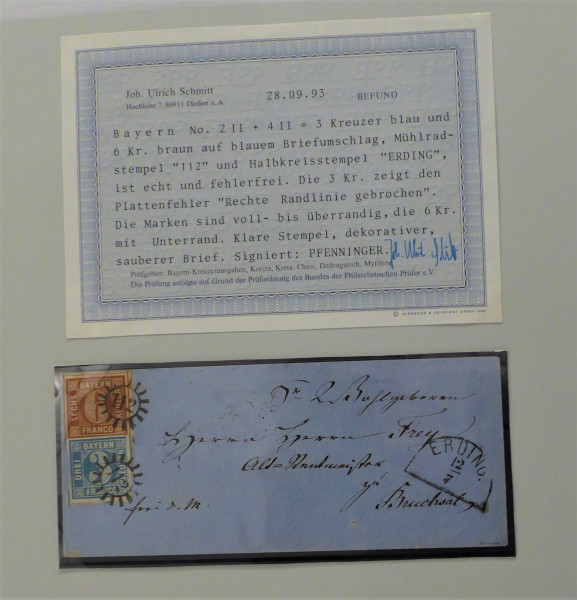 Joh. Ulrich Schmitt
Hochleite 7, 86911 Dießen a. A.
28.09.93 BEFUND
Bayern No. 2 II + 4 II = 3 Kreuzer blau und
6 Kr. braun auf blauem Briefumschlag, Mühlrad-
stempel "112" und Halbkreisstempel "ERDING",
ist echt und fehlerfrei. Die 3 Kr. zeigt den
Plattenfehler "Rechte Randlinie gebrochen".
Die Marken sind voll- bis überrandig, die 6 Kr.
mit Unterrand. Klare Stempel, dekorativer,
sauberer Brief. Signiert: PFENNINGER.
Prüfgebiet: Bayern-Kreuzerausgaben, Koritza, Kreta, Chios, Dedeagatsch, Mytilene
Die Prüfung erfolgte auf Grund der Prüfordnung des Bundes der Philatelistischen Prüfer e.V.
BAYERN
SECHS
6
FRANCO
BAYERN
DREI
3
FRANCO
Wohlgeboren
Herrn Herrn Frey
Alt-Rentmeister
Bruchsal
frei d. M.
ERDING.
12